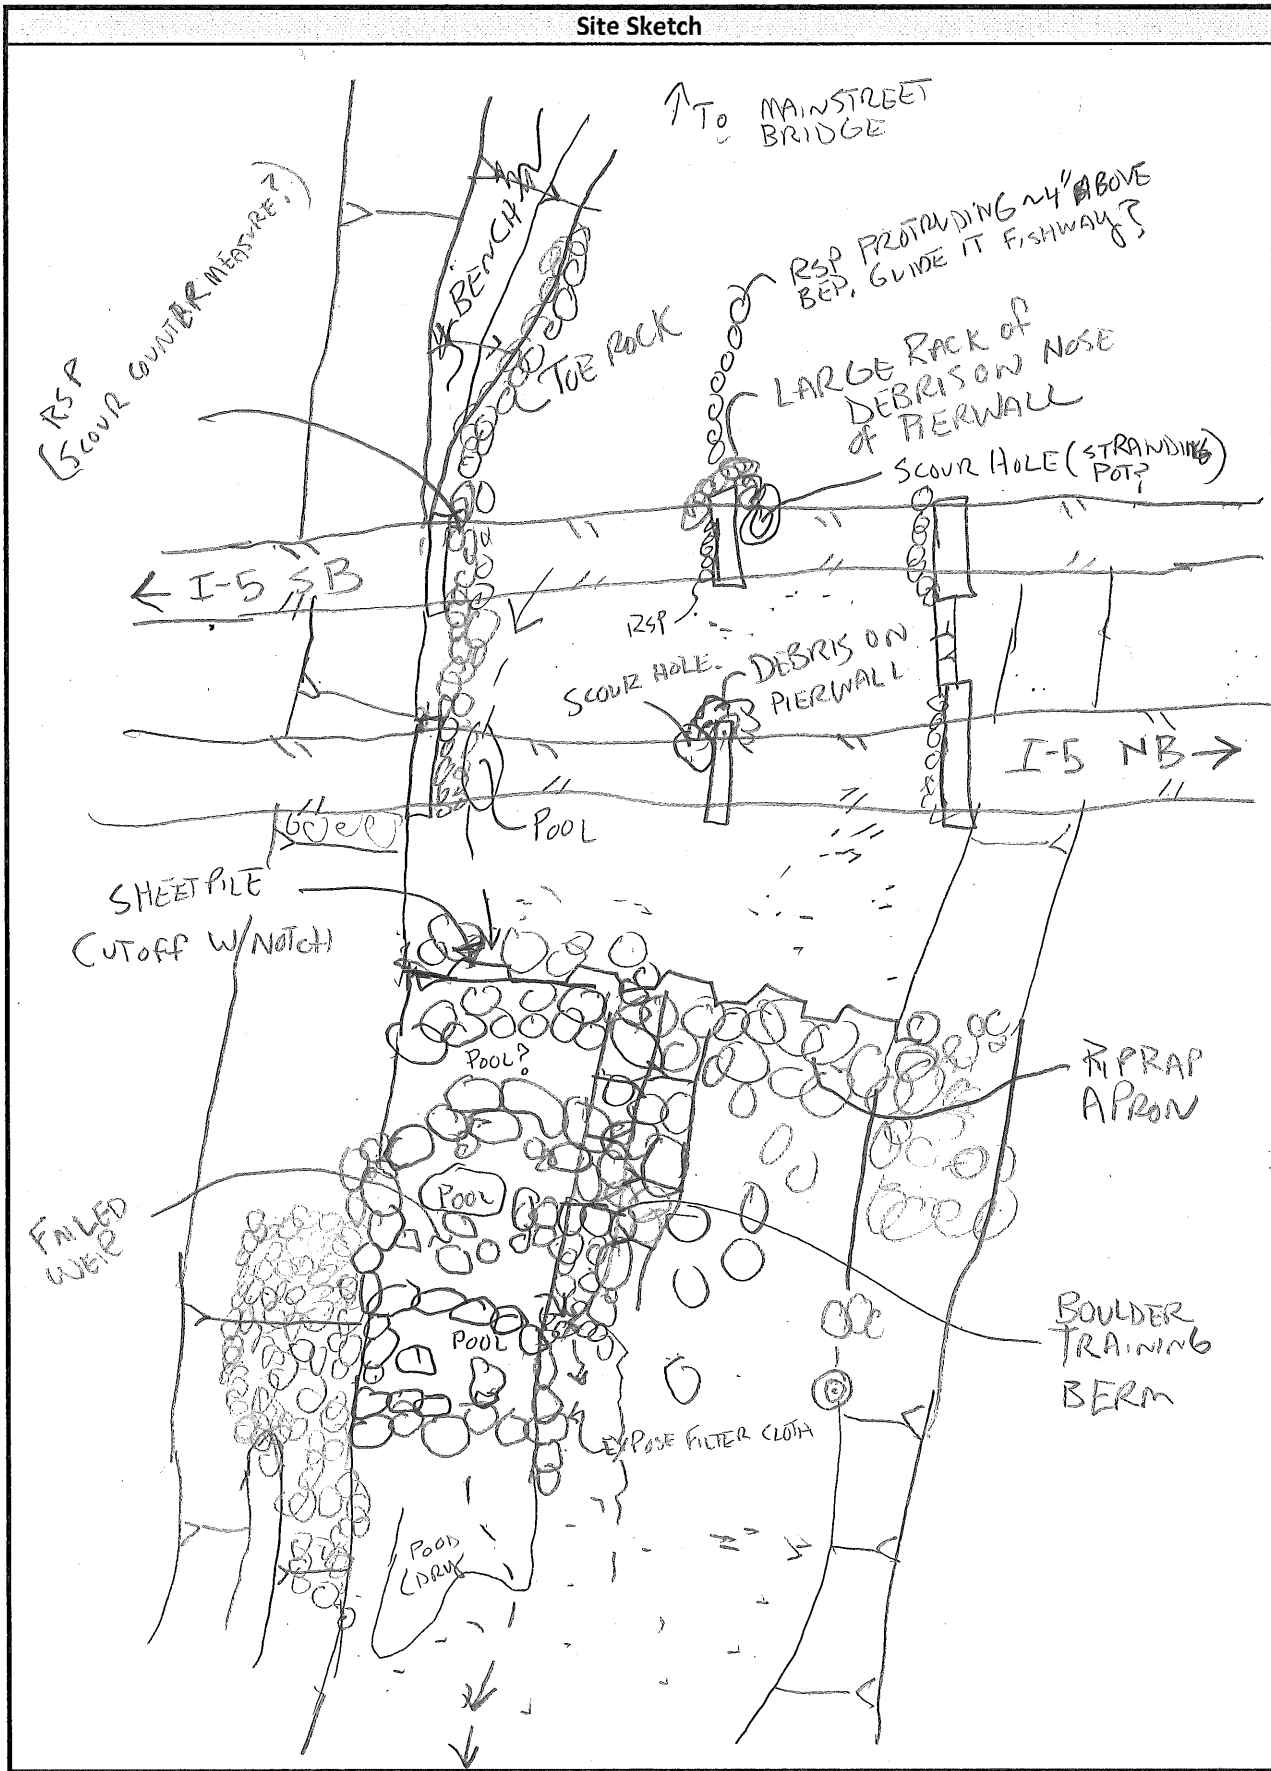 Site Sketch
↑ TO MAINSTREET
BRIDGE
RSP
(SCOUR COUNTERMEASURE?)
BENCH
TOE ROCK
RSP PROTRUDING ~4" ABOVE
BED. GUIDE IT FISHWAY?
LARGE RACK of
DEBRIS ON NOSE
of PIERWALL
SCOUR HOLE (STRANDING
POT?)
← I-5 SB
RSP
SCOUR HOLE
DEBRIS ON
PIERWALL
I-5 NB →
POOL
SHEETPILE
CUTOFF W/NOTCH
POOL?
RIPRAP
APRON
POOL
FAILED
WEIR
POOL
BOULDER
TRAINING
BERM
EXPOSE FILTER CLOTH
(DRY